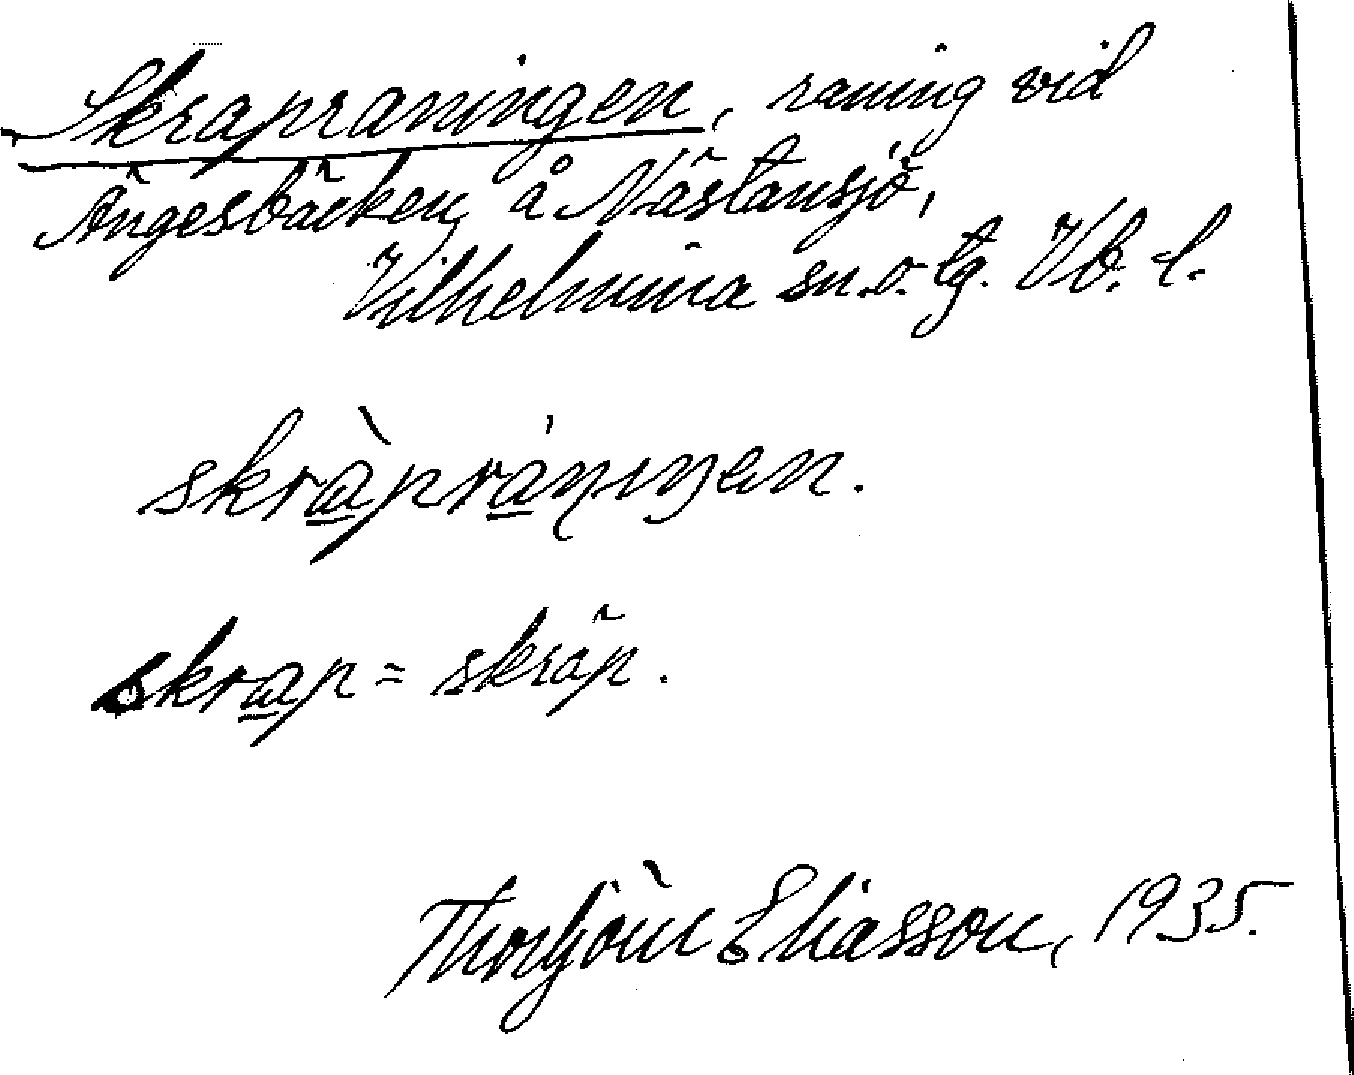 Skrapraningen, raning vid
Ängesbäcken å Nästansjö,
Vilhelmina sn. o. tg. Vb. l.
skrà̲prá̲ŋıŋen.
skra̲p = skräp.
Thorbjörn Eliasson, 1935.